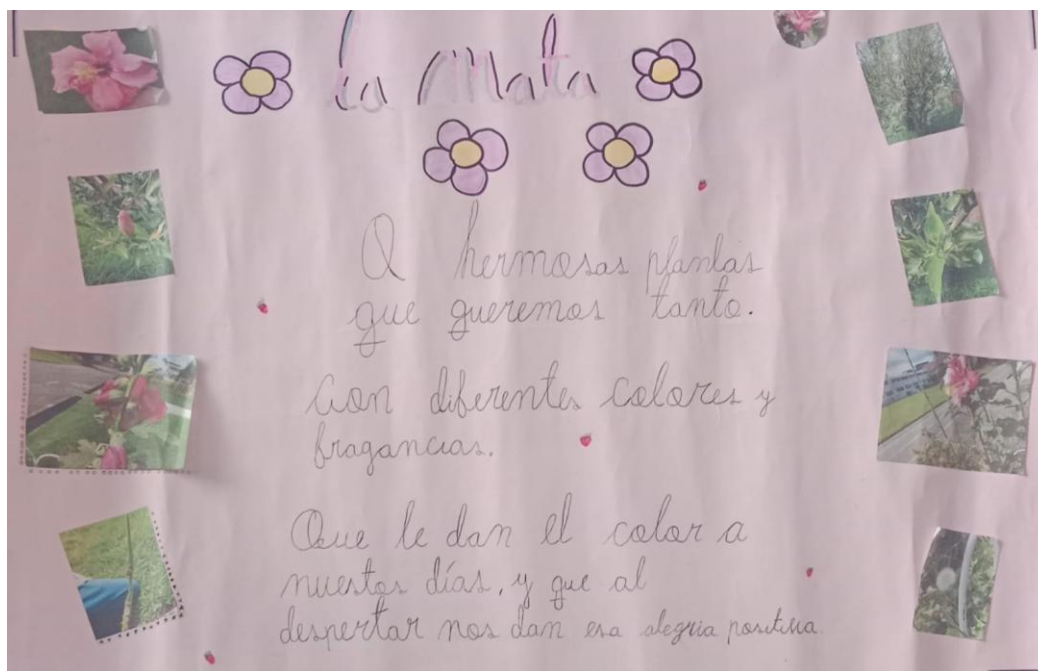 La Mata
O hermosas plantas
que queremos tanto.
Con diferentes colores y
fragancias.
Que le dan el color a
nuestos días, y que al
despertar nos dan esa alegria positiva.